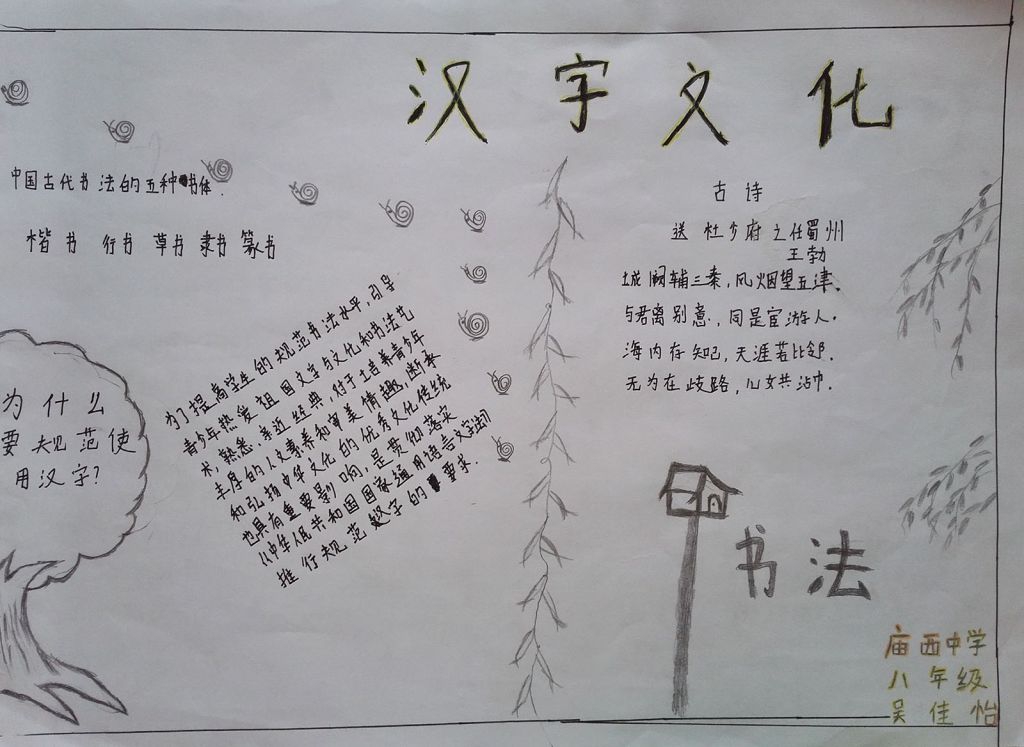 汉字文化
中国古代书法的五种书体.
楷书 行书 草书 隶书 篆书
为什么
要规范使
用汉字?
为了提高学生的规范书法水平,引导
青少年热爱祖国文字与文化和书法艺
术,熟悉、亲近经典,付于培养青少年
丰厚的人文素养和审美情趣,断承
和弘扬中华文化的优秀文化传统
也具有重要影响,是贯彻落实
《中华人民共和国国家通用语言文字法》
推行规范汉字的要求.
古诗
送杜少府之任蜀州
王勃
城阙辅三秦,风烟望五津.
与君离别意.,同是宦游人.
海内存知己,天涯若比邻.
无为在歧路,儿女共沾巾.
书法
庙西中学
八年级
吴佳怡